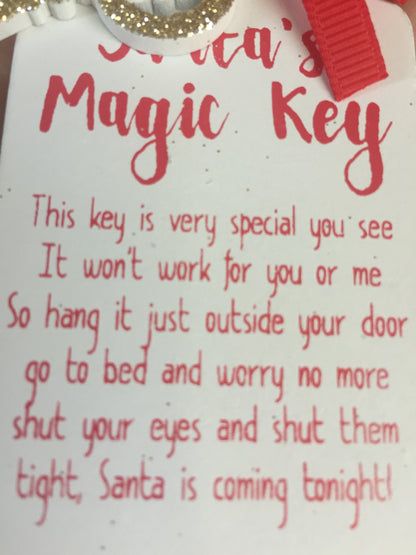 Santa's
Magic Key
This key is very special you see
It won't work for you or me
So hang it just outside your door
go to bed and worry no more
shut your eyes and shut them
tight, Santa is coming tonight!